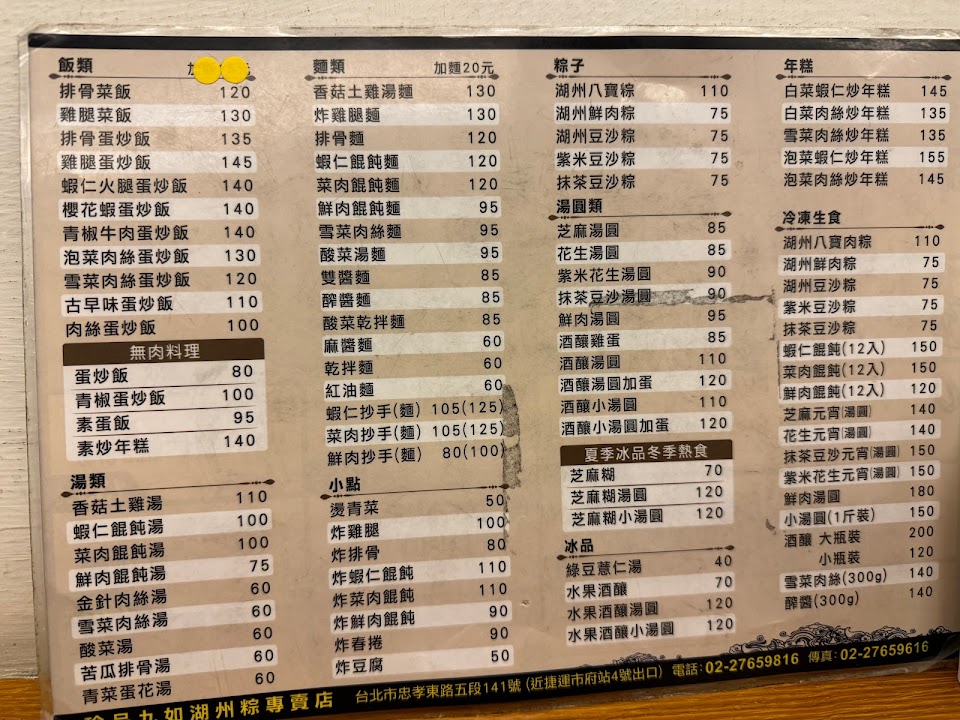 飯類 加 元
排骨菜飯 120
雞腿菜飯 130
排骨蛋炒飯 135
雞腿蛋炒飯 145
蝦仁火腿蛋炒飯 140
櫻花蝦蛋炒飯 140
青椒牛肉蛋炒飯 140
泡菜肉絲蛋炒飯 130
雪菜肉絲蛋炒飯 120
古早味蛋炒飯 110
肉絲蛋炒飯 100
無肉料理
蛋炒飯 80
青椒蛋炒飯 100
素蛋飯 95
素炒年糕 140
湯類
香菇土雞湯 110
蝦仁餛飩湯 100
菜肉餛飩湯 100
鮮肉餛飩湯 75
金針肉絲湯 60
雪菜肉絲湯 60
酸菜湯 60
苦瓜排骨湯 60
青菜蛋花湯 60
麵類 加麵20元
香菇土雞湯麵 130
炸雞腿麵 130
排骨麵 120
蝦仁餛飩麵 120
菜肉餛飩麵 120
鮮肉餛飩麵 95
雪菜肉絲麵 95
酸菜湯麵 95
雙醬麵 85
醡醬麵 85
酸菜乾拌麵 85
麻醬麵 60
乾拌麵 60
紅油麵 60
蝦仁抄手(麵) 105(125)
菜肉抄手(麵) 105(125)
鮮肉抄手(麵) 80(100)
小點
燙青菜 50
炸雞腿 100
炸排骨 80
炸蝦仁餛飩 110
炸菜肉餛飩 110
炸鮮肉餛飩 90
炸春捲 90
炸豆腐 50
粽子
湖州八寶粽 110
湖州鮮肉粽 75
湖州豆沙粽 75
紫米豆沙粽 75
抹茶豆沙粽 75
湯圓類
芝麻湯圓 85
花生湯圓 85
紫米花生湯圓 90
抹茶豆沙湯圓 90
鮮肉湯圓 95
酒釀雞蛋 85
酒釀湯圓 110
酒釀湯圓加蛋 120
酒釀小湯圓 110
酒釀小湯圓加蛋 120
夏季冰品冬季熱食
芝麻糊 70
芝麻糊湯圓 120
芝麻糊小湯圓 120
冰品
綠豆薏仁湯 40
水果酒釀 70
水果酒釀湯圓 120
水果酒釀小湯圓 120
年糕
白菜蝦仁炒年糕 145
白菜肉絲炒年糕 135
雪菜肉絲炒年糕 135
泡菜蝦仁炒年糕 155
泡菜肉絲炒年糕 145
冷凍生食
湖州八寶肉粽 110
湖州鮮肉粽 75
湖州豆沙粽 75
紫米豆沙粽 75
抹茶豆沙粽 75
蝦仁餛飩(12入) 150
菜肉餛飩(12入) 150
鮮肉餛飩(12入) 120
芝麻元宵(湯圓) 140
花生元宵(湯圓) 140
抹茶豆沙元宵(湯圓) 150
紫米花生元宵(湯圓) 150
鮮肉湯圓 180
小湯圓(1斤裝) 150
酒釀 大瓶裝 200
小瓶裝 120
雪菜肉絲(300g) 140
醡醬(300g) 140
九如湖州粽專賣店 台北市忠孝東路五段141號(近捷運市府站4號出口) 電話:02-27659816 傳真:02-27659616